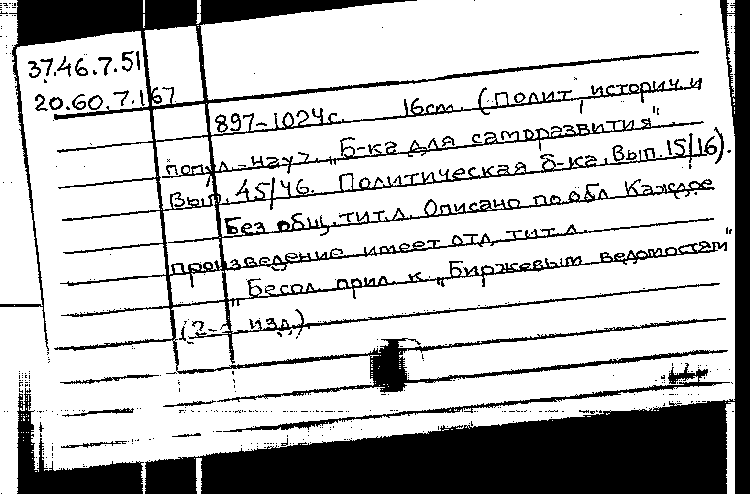 37.46.7.51
20.60.7.167
897-1024с. 16см. (Полит, историч. и
попул.-науч. „Б-ка для саморазвития".
Вып. 45/46. Политическая б-ка. Вып. 15/16).
Без общ. тит. л. Описано по обл. Каждое
произведение имеет отд. тит. л.
„Беспл. прил. к „Биржевым ведомостям"
(2-е изд.).